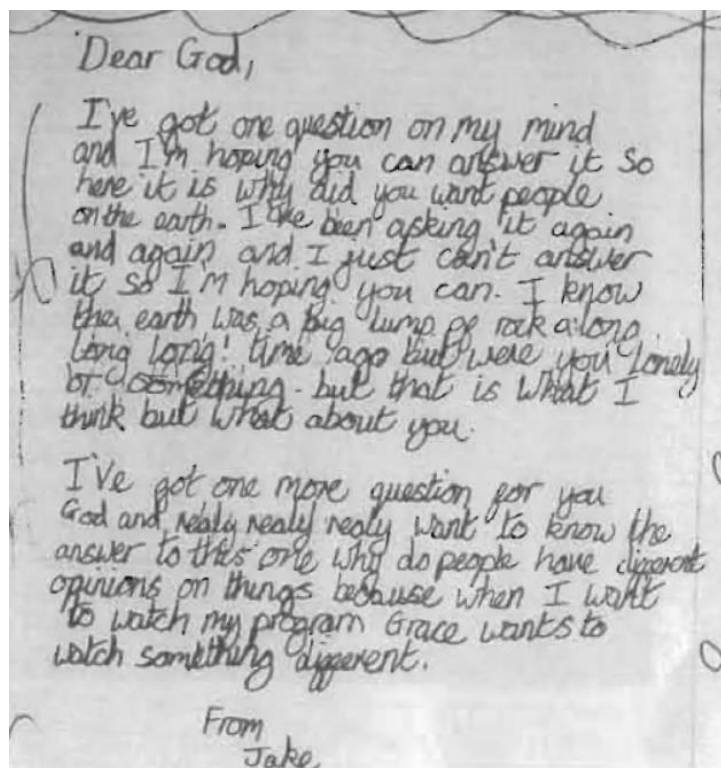 Dear God,
I've got one question on my mind
and I'm hoping you can answer it so
here it is why did you want people
on the earth. I've been asking it again
and again and I just can't answer
it so I'm hoping you can. I know
the earth was a big lump of rock a long
long long! time ago but were you lonely
or something. but that is what I
think but what about you.
I've got one more question for you
God and realy realy realy want to know the
answer to this one why do people have different
opinions on things because when I want
to watch my program Grace wants to
watch something different.
From
Jake